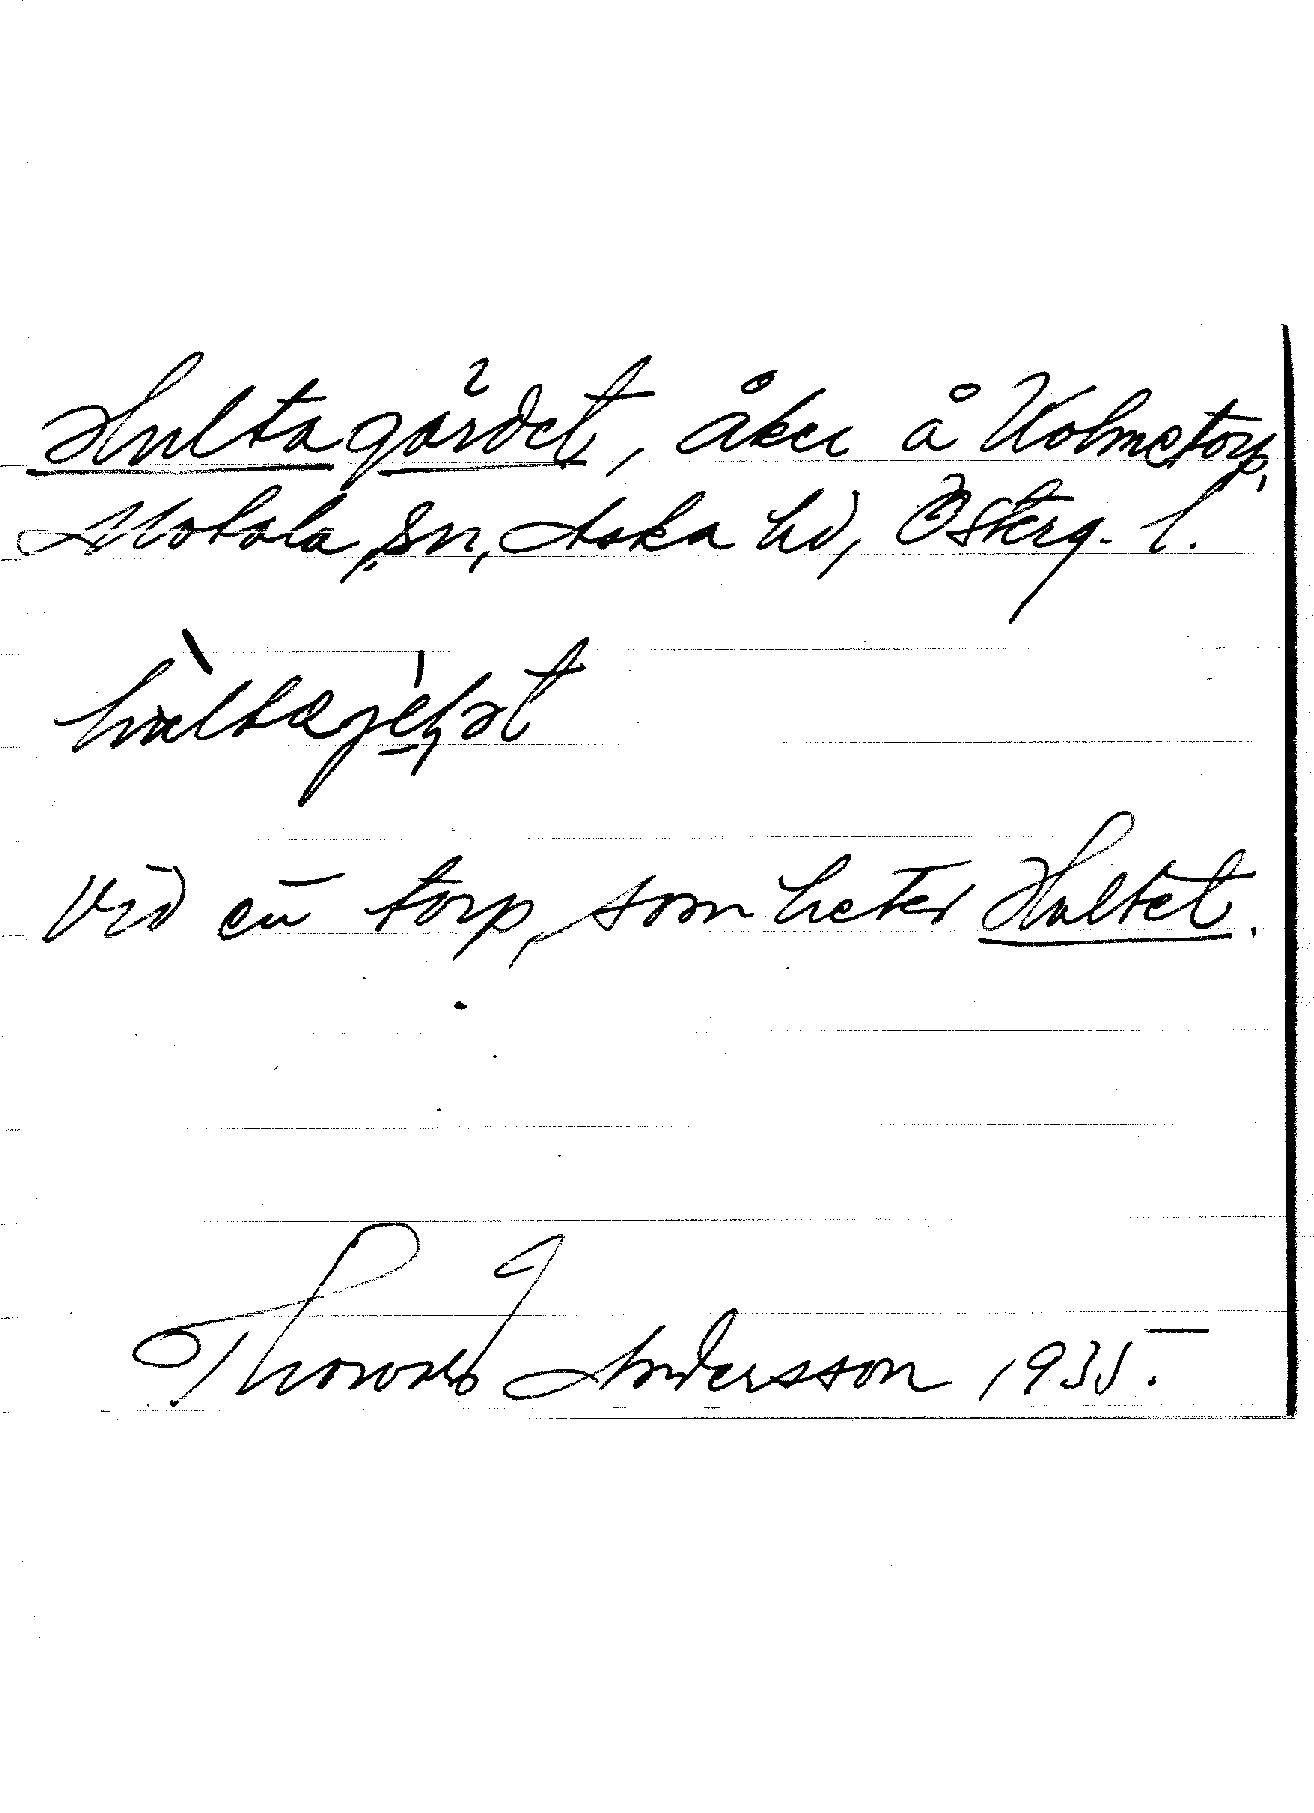 Hultagärdet, åker å Kolmetorp,
Motala sn, Aska hd, Österg. l.
hùltajęṛət
Vid en torp, som heter Hultet.
Thorvald Andersson 1935.